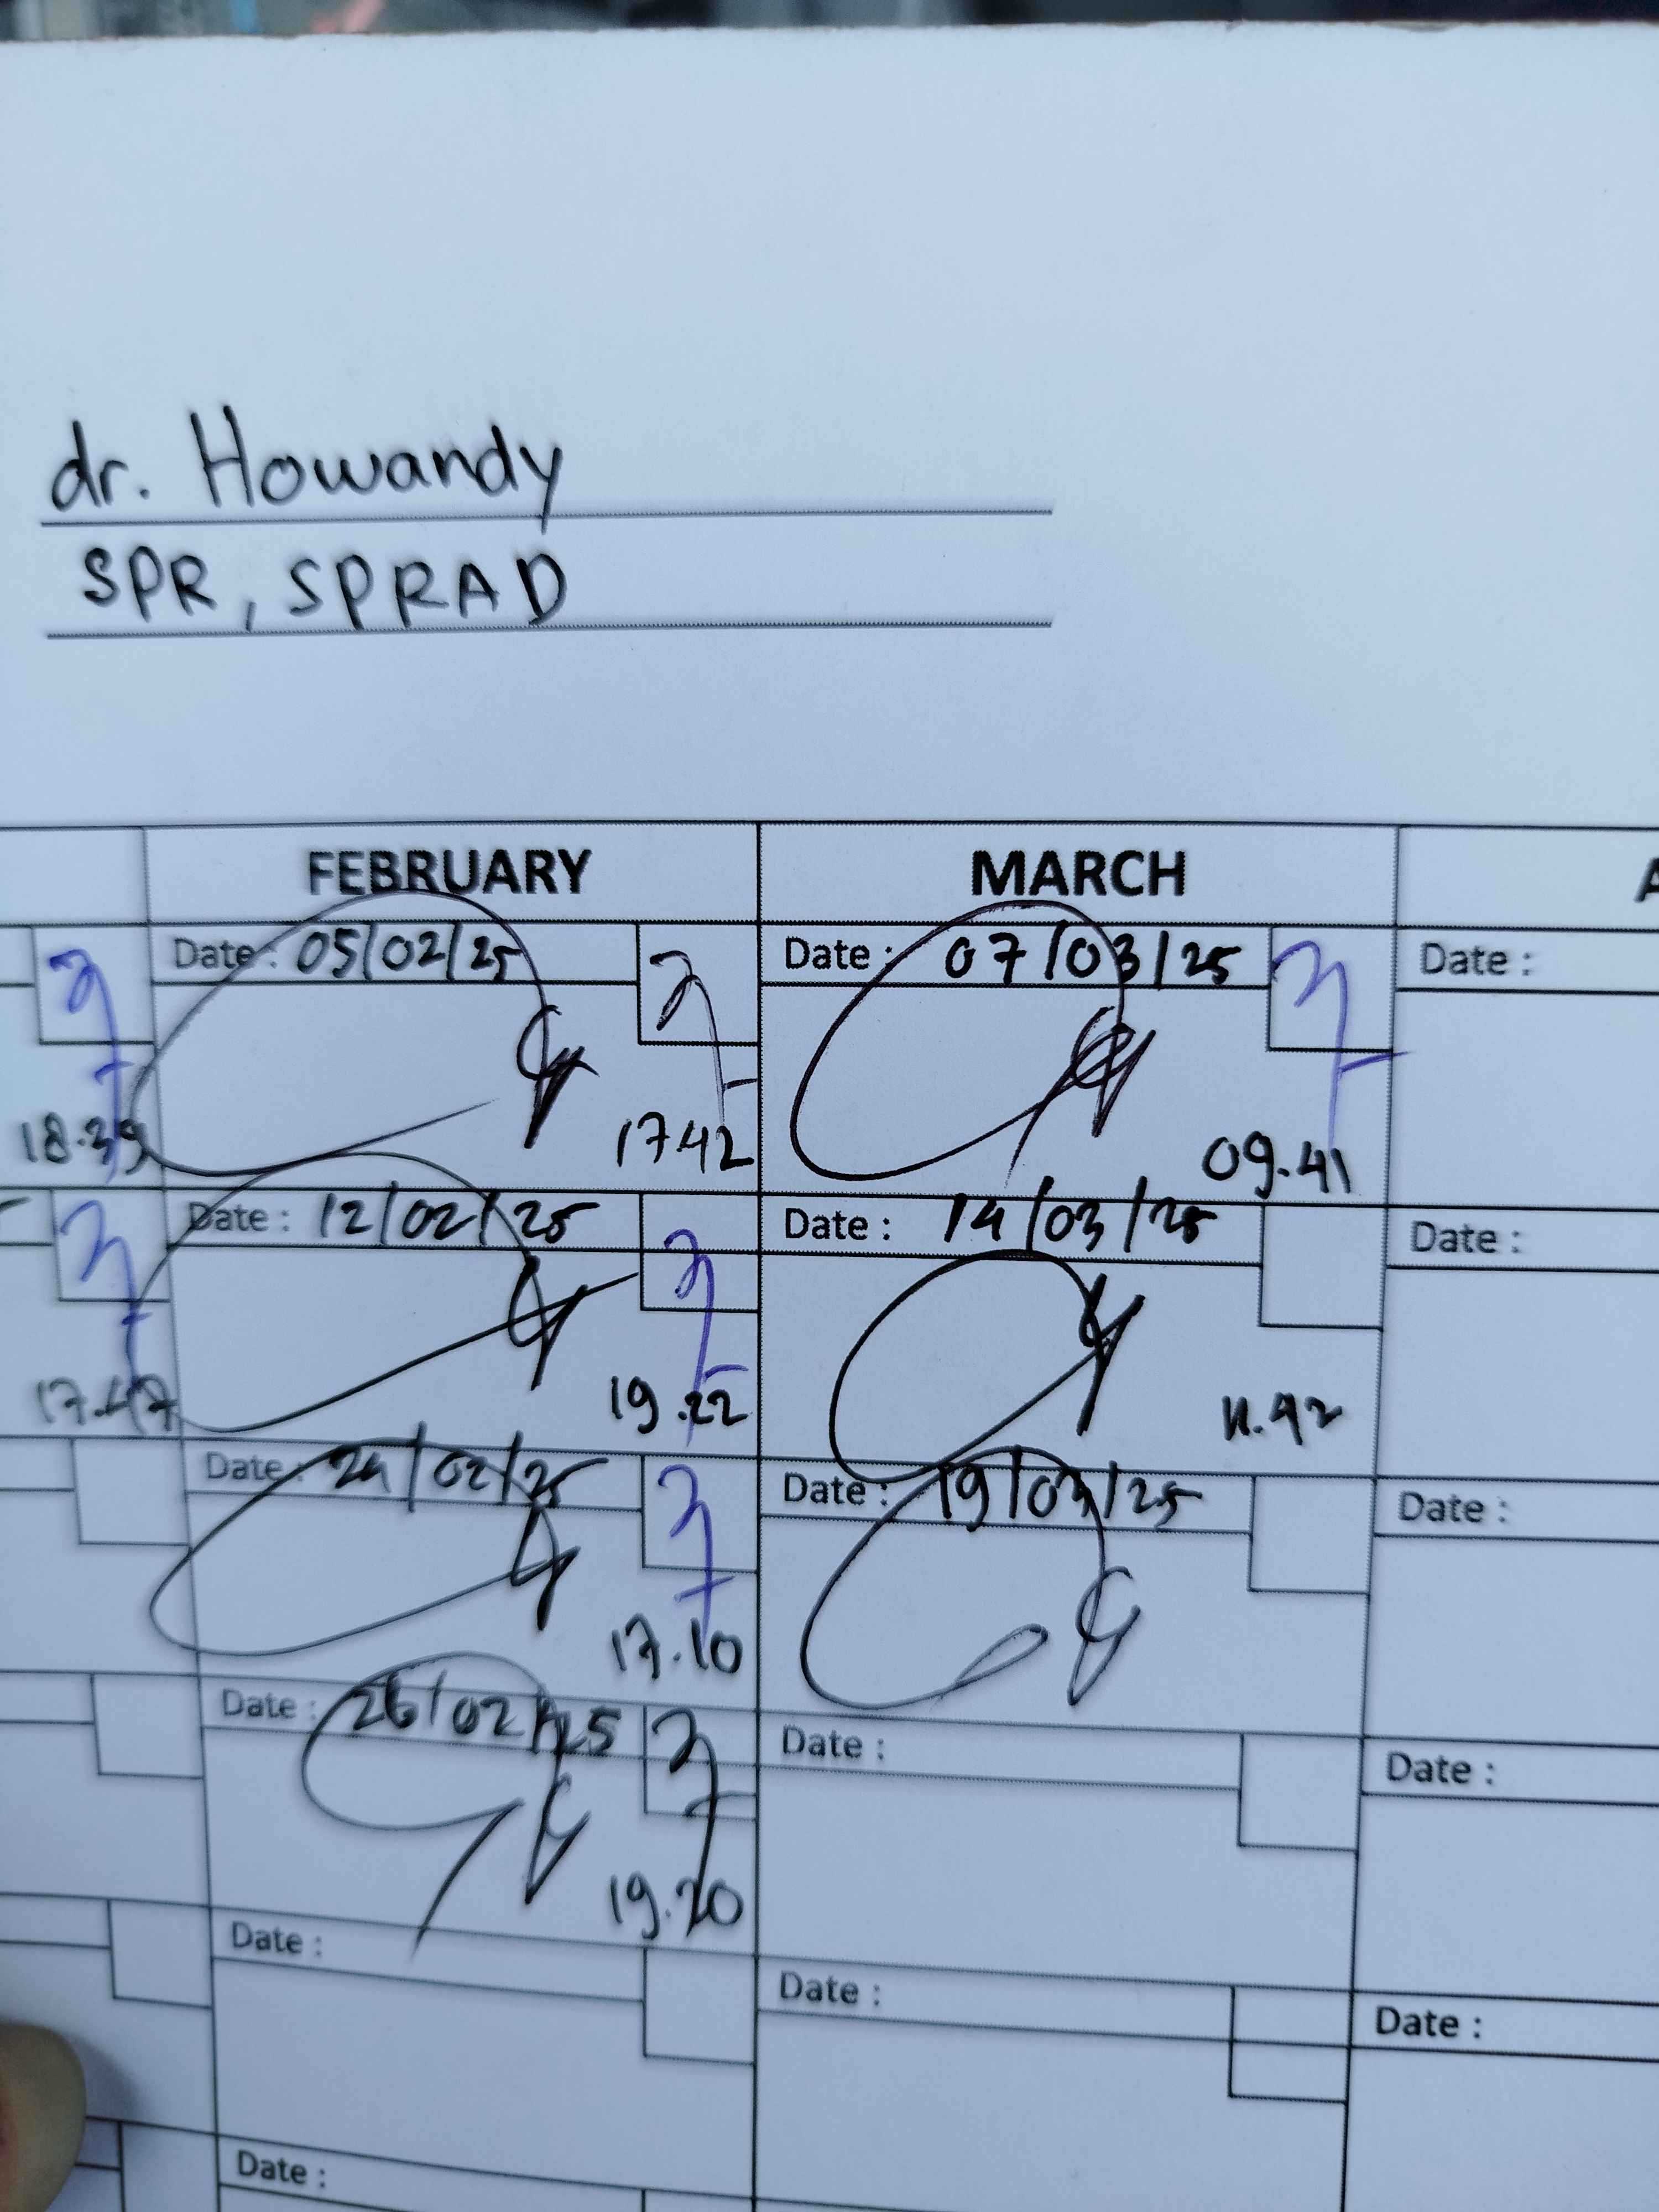 dr. Howandy
SPR, SPRAD
FEBRUARY MARCH
Date : 05/02/25 Date : 07/03/25 Date :
18.39 17.42 09.41
Date : 12/02/25 Date : 14/03/25 Date :
17.47 19.22 11.42
Date : 24/02/25 Date : 19/03/25 Date :
17.10
Date : 26/02/25 Date : Date :
19.20
Date : Date : Date :
Date :